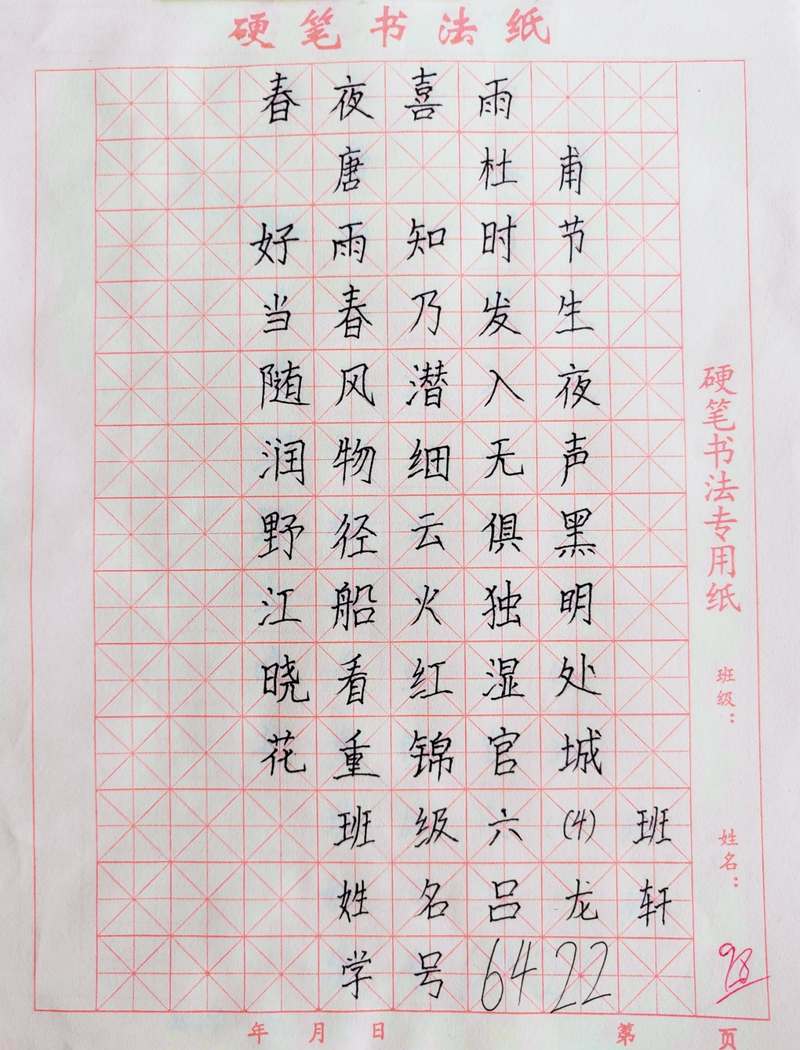 硬笔书法纸
春夜喜雨
唐 杜甫
好雨知时节
当春乃发生
随风潜入夜
润物细无声
野径云俱黑
江船火独明
晓看红湿处
花重锦官城
班级六(4)班
姓名吕龙轩
学号6422
硬笔书法专用纸
班级：
姓名：
98
年 月 日
第 页